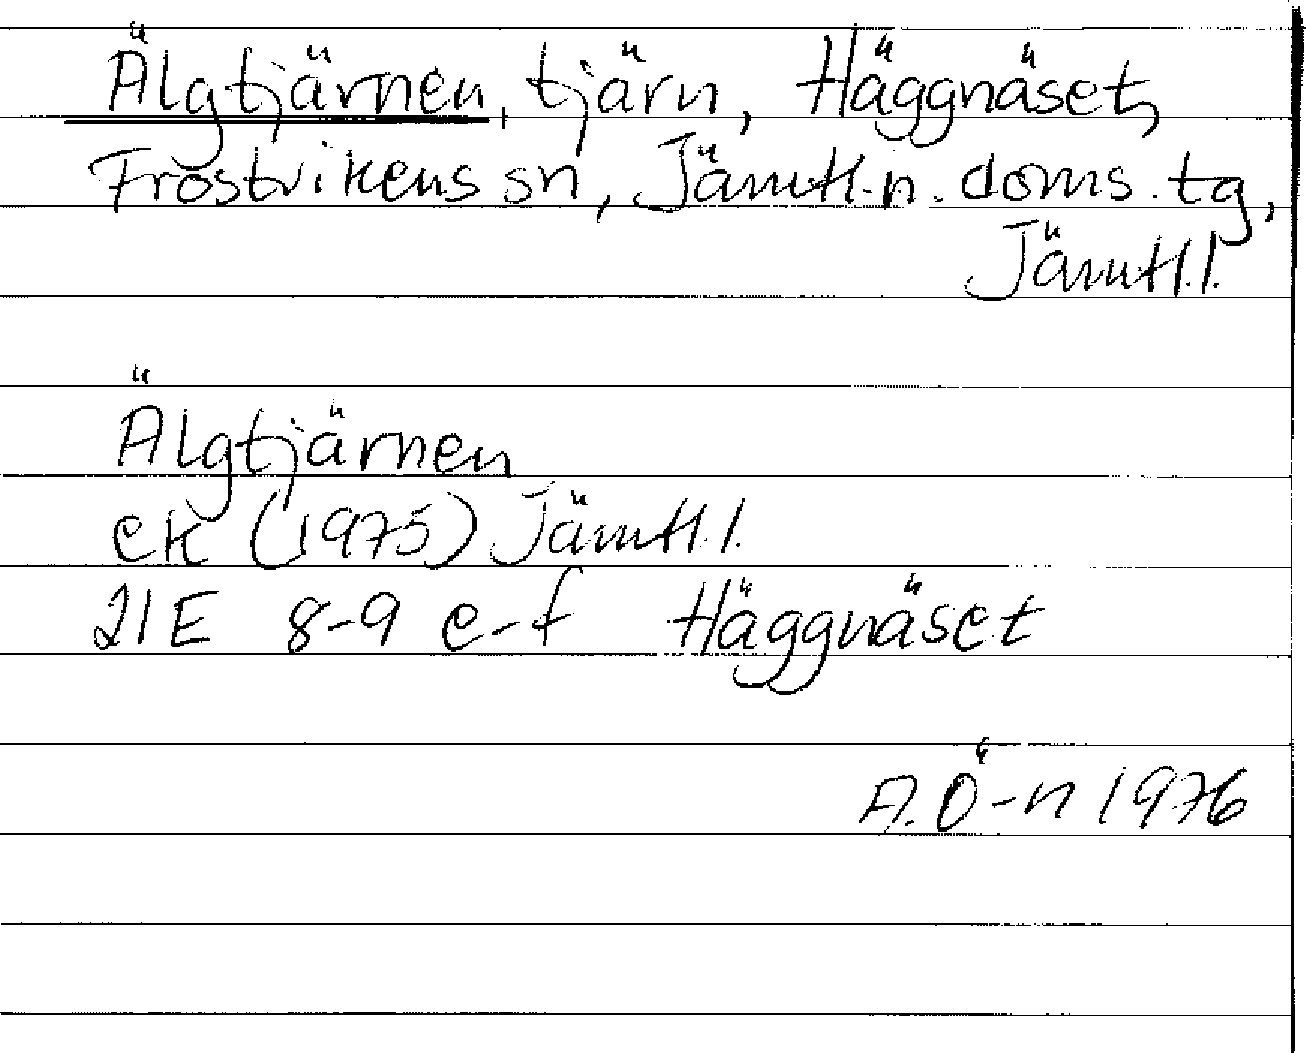 Älgtjärnen, tjärn, Häggnäset,
Frostvikens sn, Jämtl.n. doms. tg,
Jämtl.l.
Älgtjärnen
ek (1975) Jämtl.l.
21E 8-9 e-f Häggnäset
A.Ö-n 1976